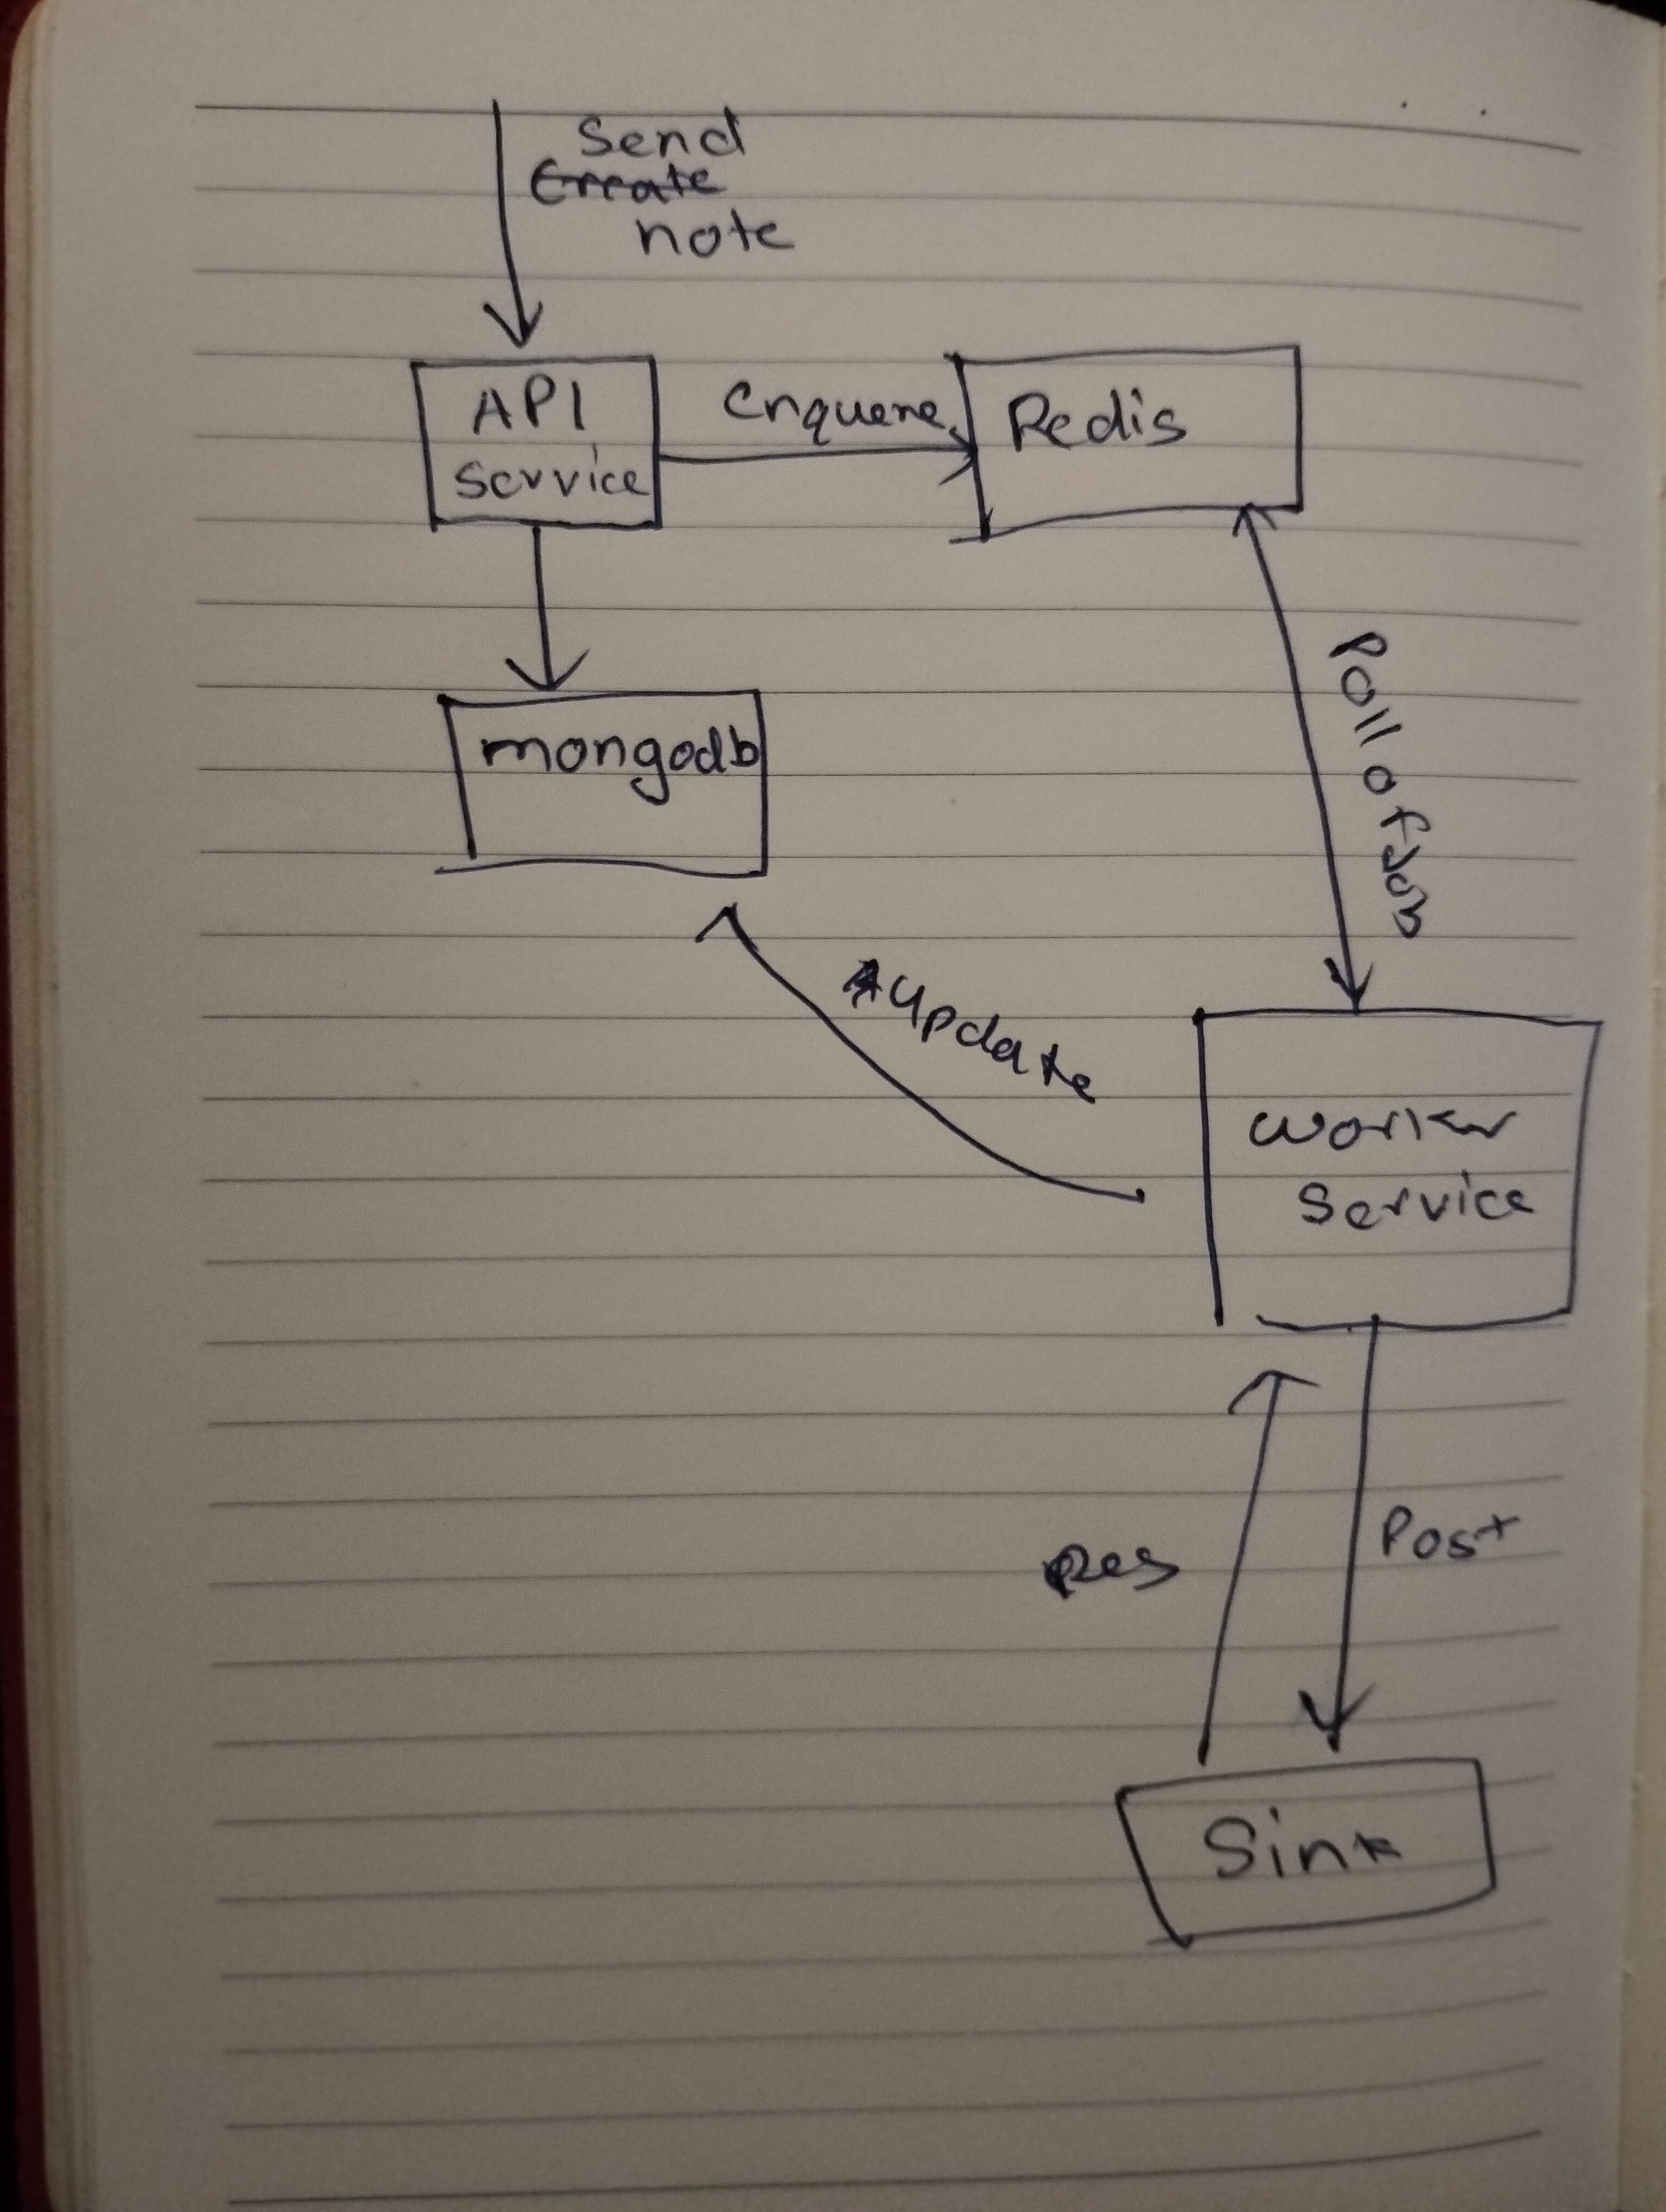 Send
Create
note
API
Service
Enqueue
Redis
Poll of Job
mongodb
Update
Worker
Service
Res
Post
Sink